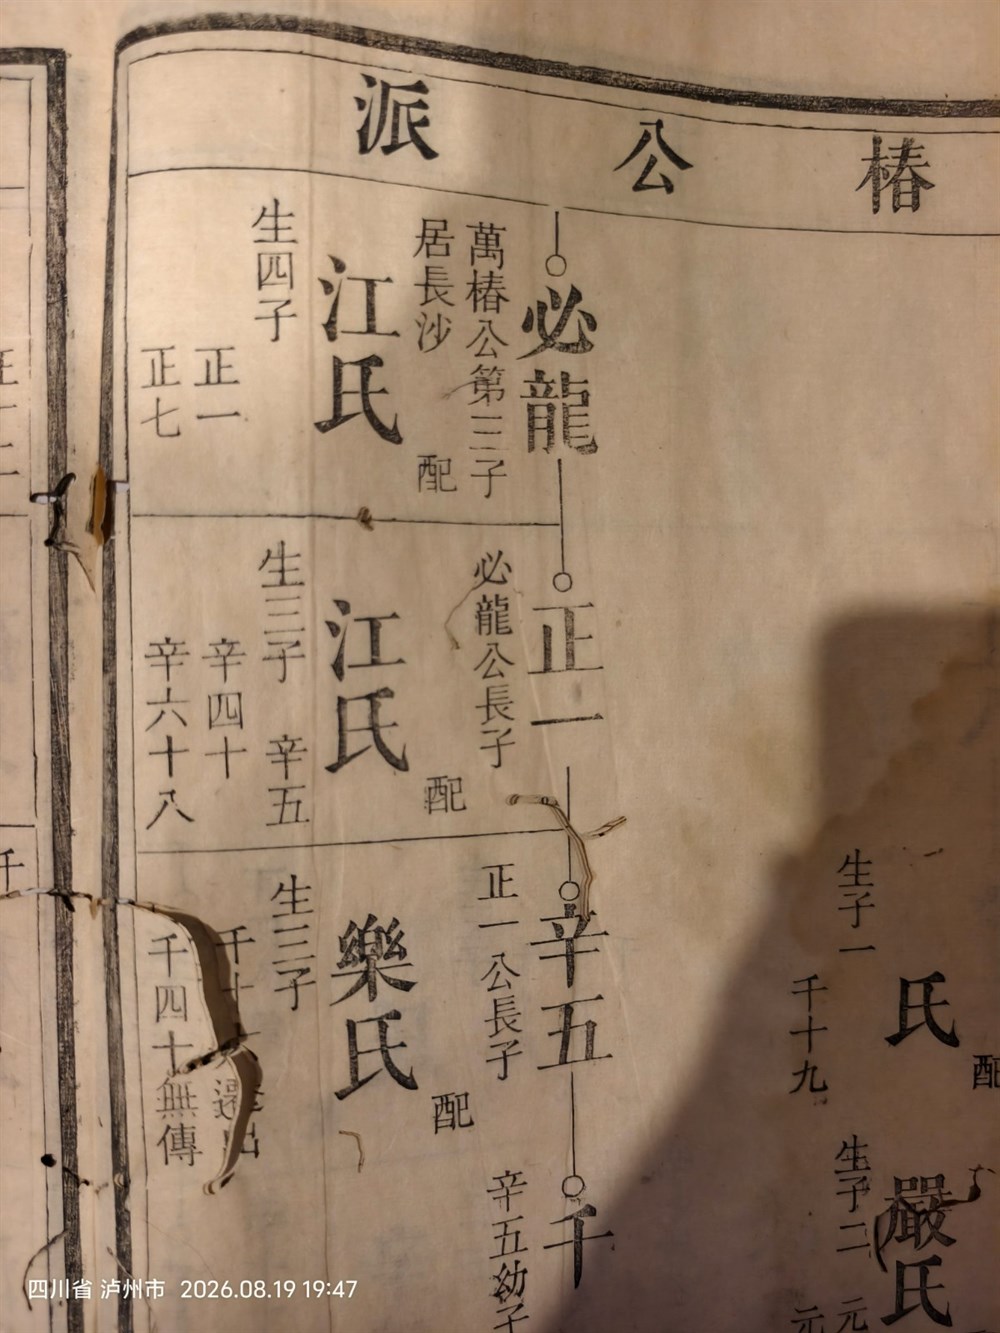 椿公派
氏
配
生子一
千十九
嚴氏
生子二
元
元
必龍
萬椿公第三子
居長沙
配
江氏
生四子
正一
正七
正一
必龍公長子
配
江氏
生三子
辛五
辛四十
辛六十八
辛五
正一公長子
配
樂氏
生三子
千十
遷出
千四十無傳
千
辛五幼子
千
四川省 泸州市 2026.08.19 19:47